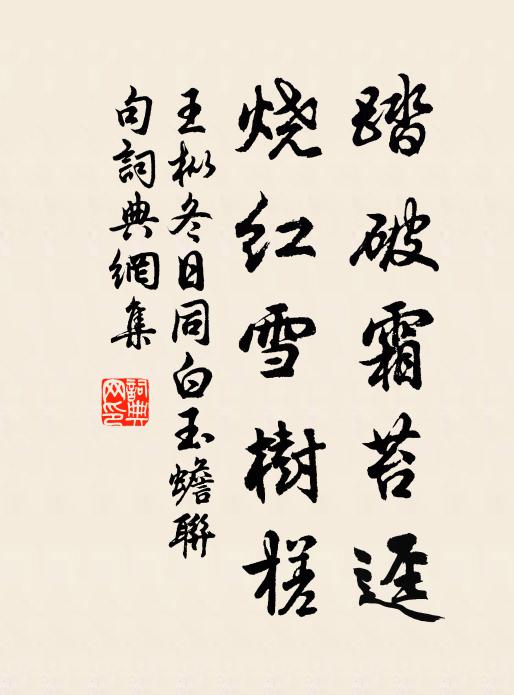 踏破霜苔迳
烧红雪樹槎
王枞冬日同白玉蟾聯
句詞典網集
詞典
网印